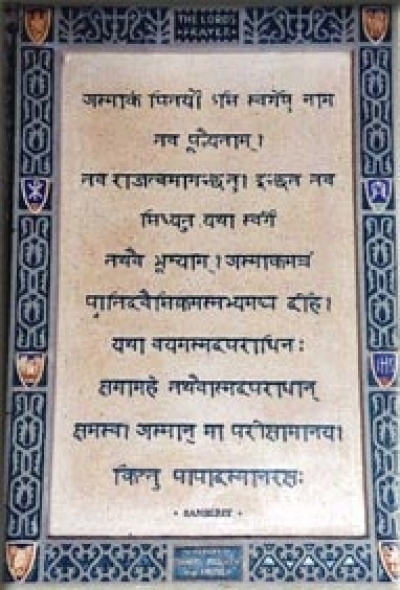 THE LORDS
PRAYER
अस्माकं पितर्यो ऽसि स्वर्गेषु नाम
तव पूज्येताम्।
तव राजत्वमागच्छतु। इच्छत तव
सिध्यतु यथा स्वर्गे
तथैव भूम्याम्। अस्माकमन्नं
प्रातिदैवसिकमस्मभ्यमद्य देहि।
यथा वयमस्मदपराधिनः
क्षमामहे तथैवास्मदपराधान्
क्षमस्व। अस्मान् मा परीक्षामानय।
किन्तु पापादस्मानरक्षः
• SANSKRIT •